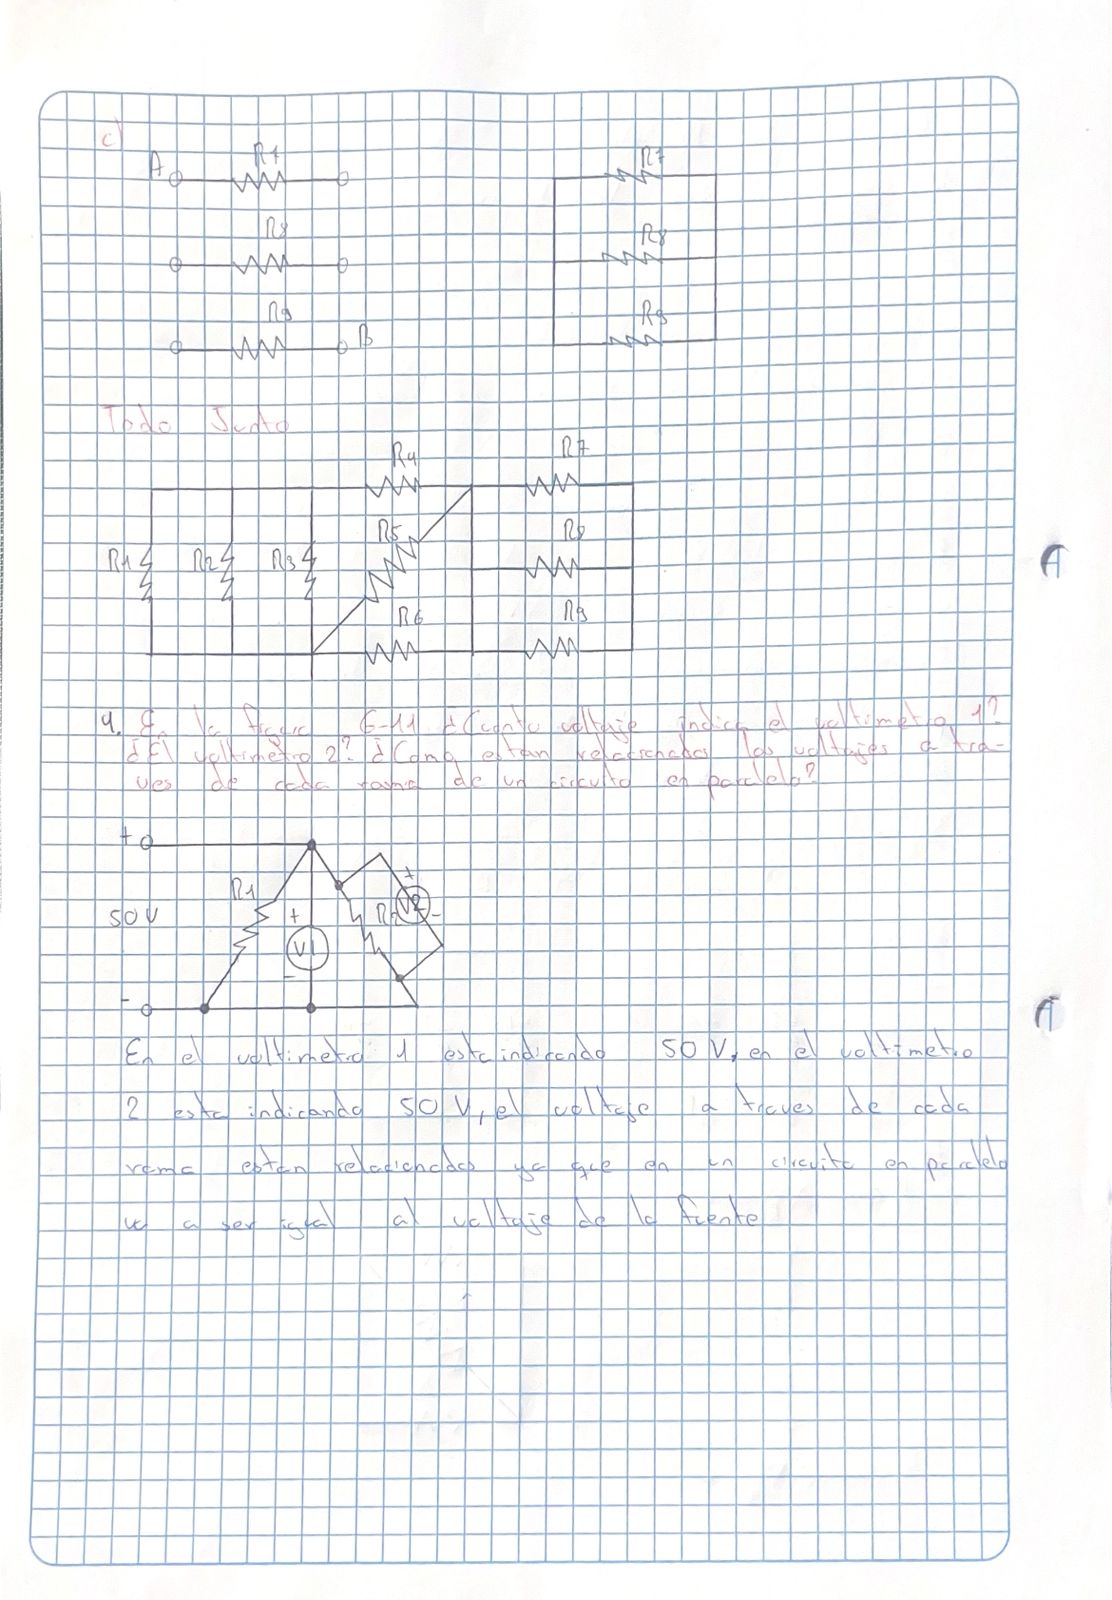 c)
A R7 R7
R8 R8
R9 B R9
Todo Junto
R4 R7
R5 R8
R1 R2 R3
R6 R9
4. En la figura 6-11 ¿Cuanto voltaje indica el voltimetro 1?
¿El voltimetro 2? ¿Como estan relacionados los voltajes a tra-
ves de cada rama de un circuito en paralelo?
+
R1 + V2
50 V + R2 -
V1
-
-
En el voltimetro 1 esta indicando 50 V, en el voltimetro
2 esta indicando 50 V, el voltaje a traves de cada
rama estan relacionados ya que en un circuito en paralelo
va a ser igual al voltaje de la fuente